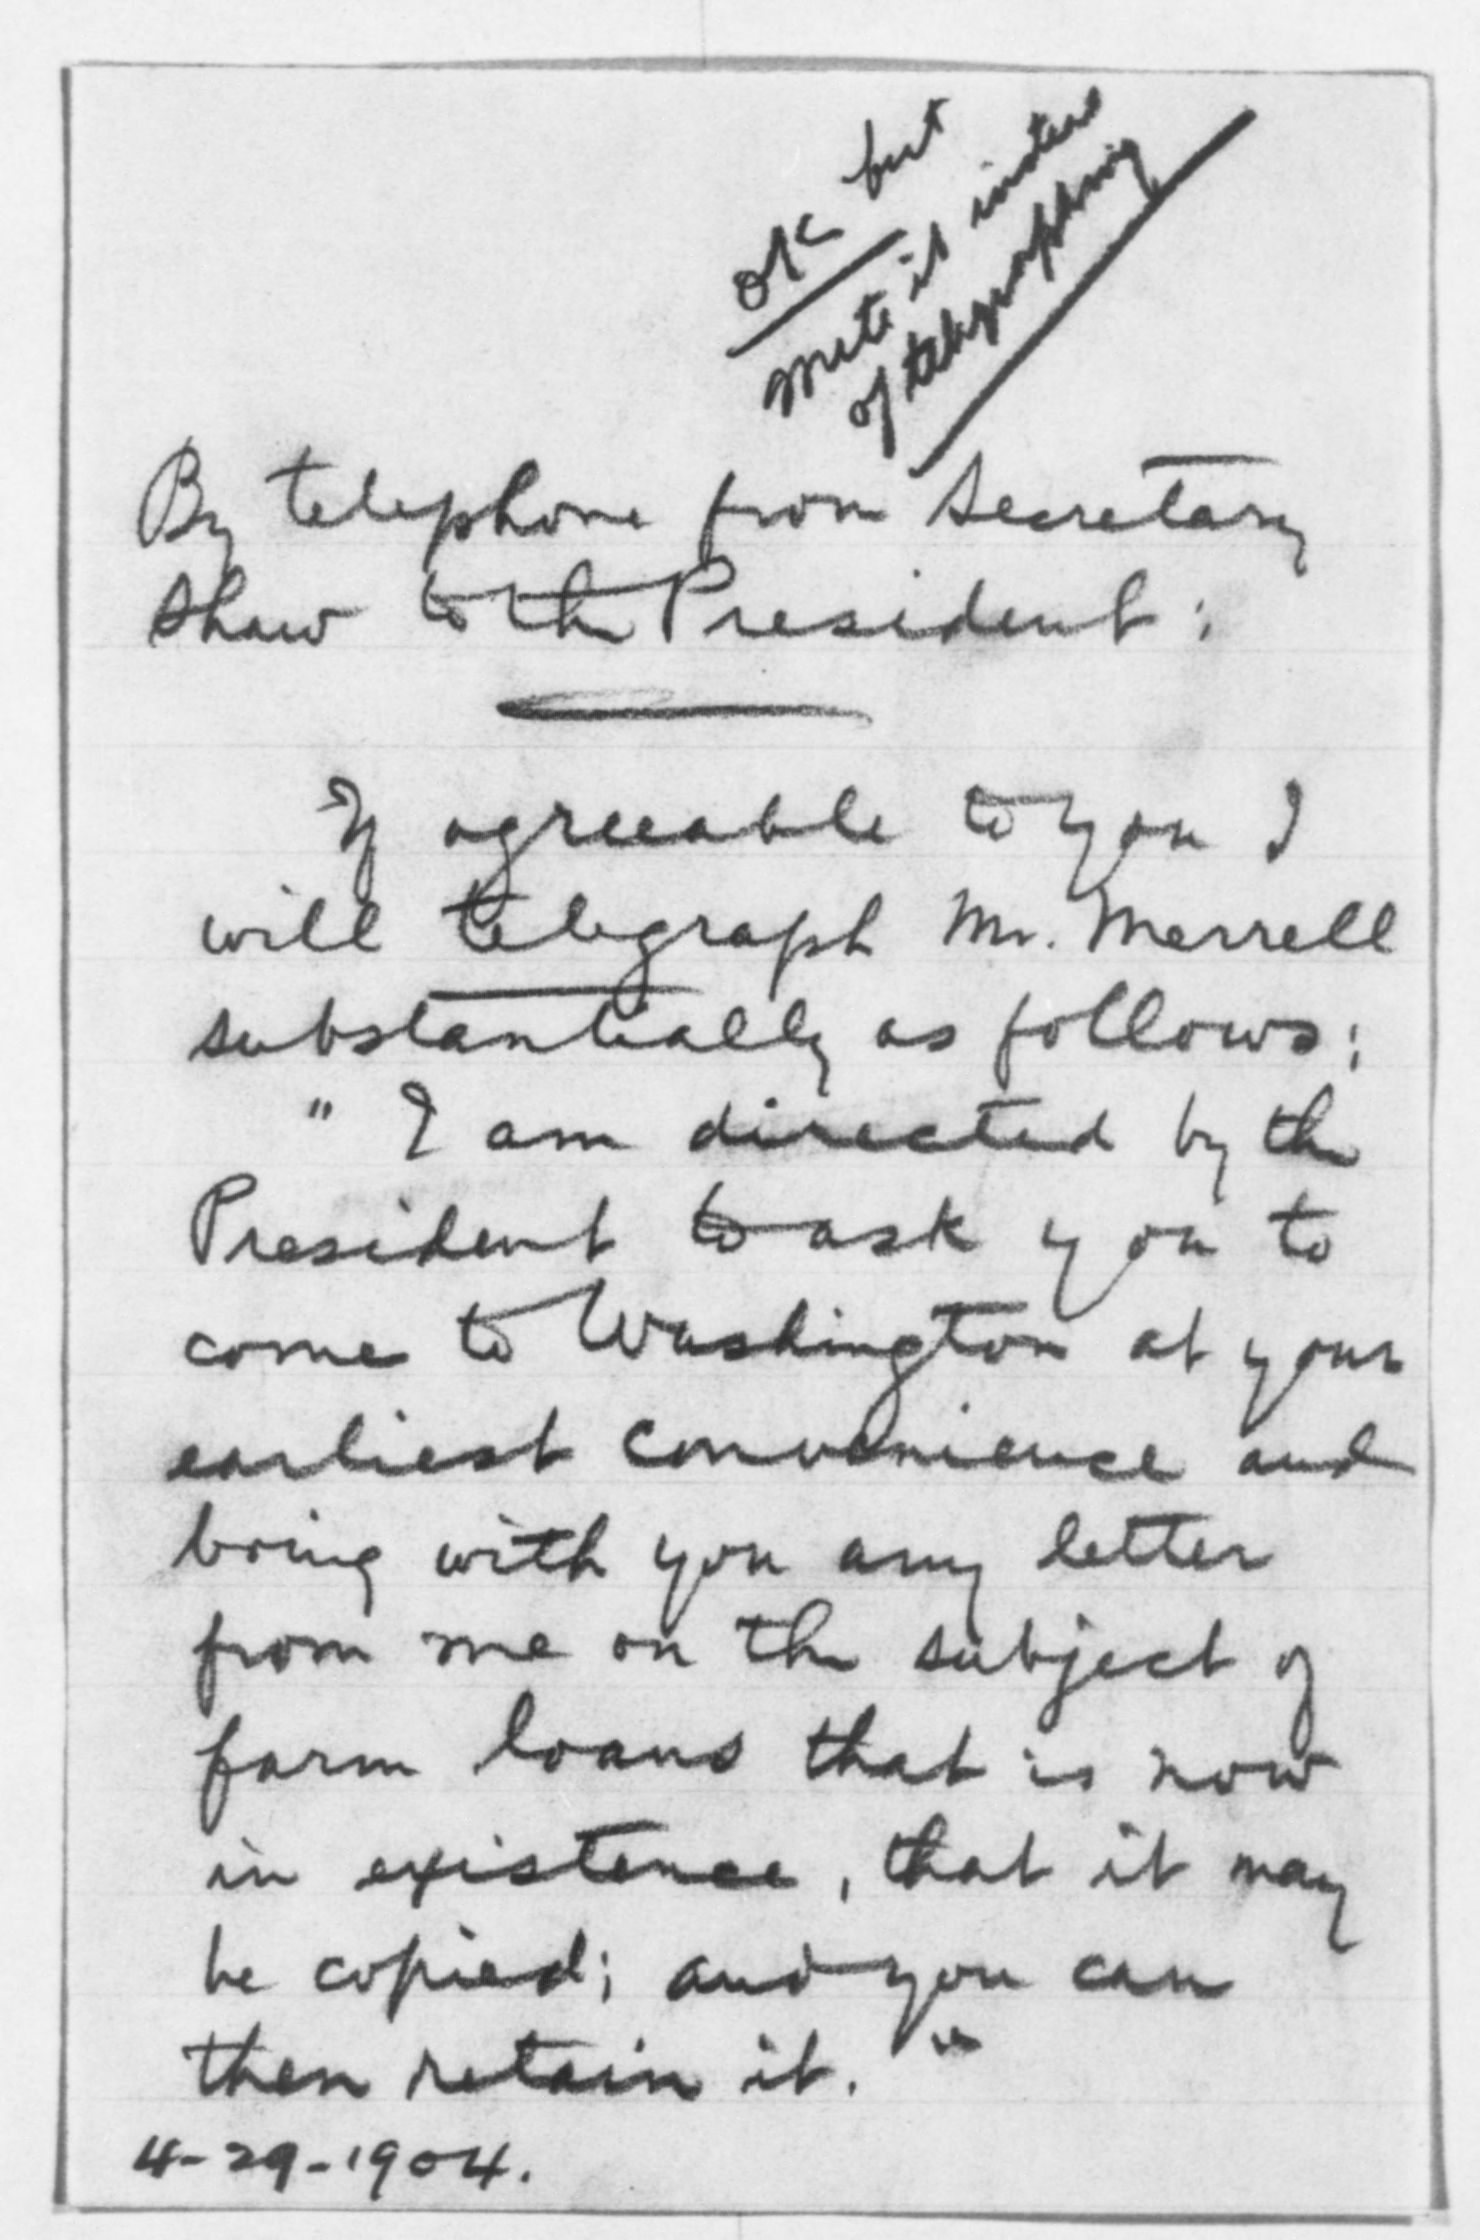 OK but
write it instead
of telegraphing
By telephone from Secretary
Shaw to the President:
If agreeable to you I
will telegraph Mr. Merrell
substantially as follows:
" I am directed by the
President to ask you to
come to Washington at your
earliest convenience and
bring with you any letter
from me on the subject of
farm loans that is now
in existence, that it may
be copied; and you can
then retain it. "
4-29-1904.